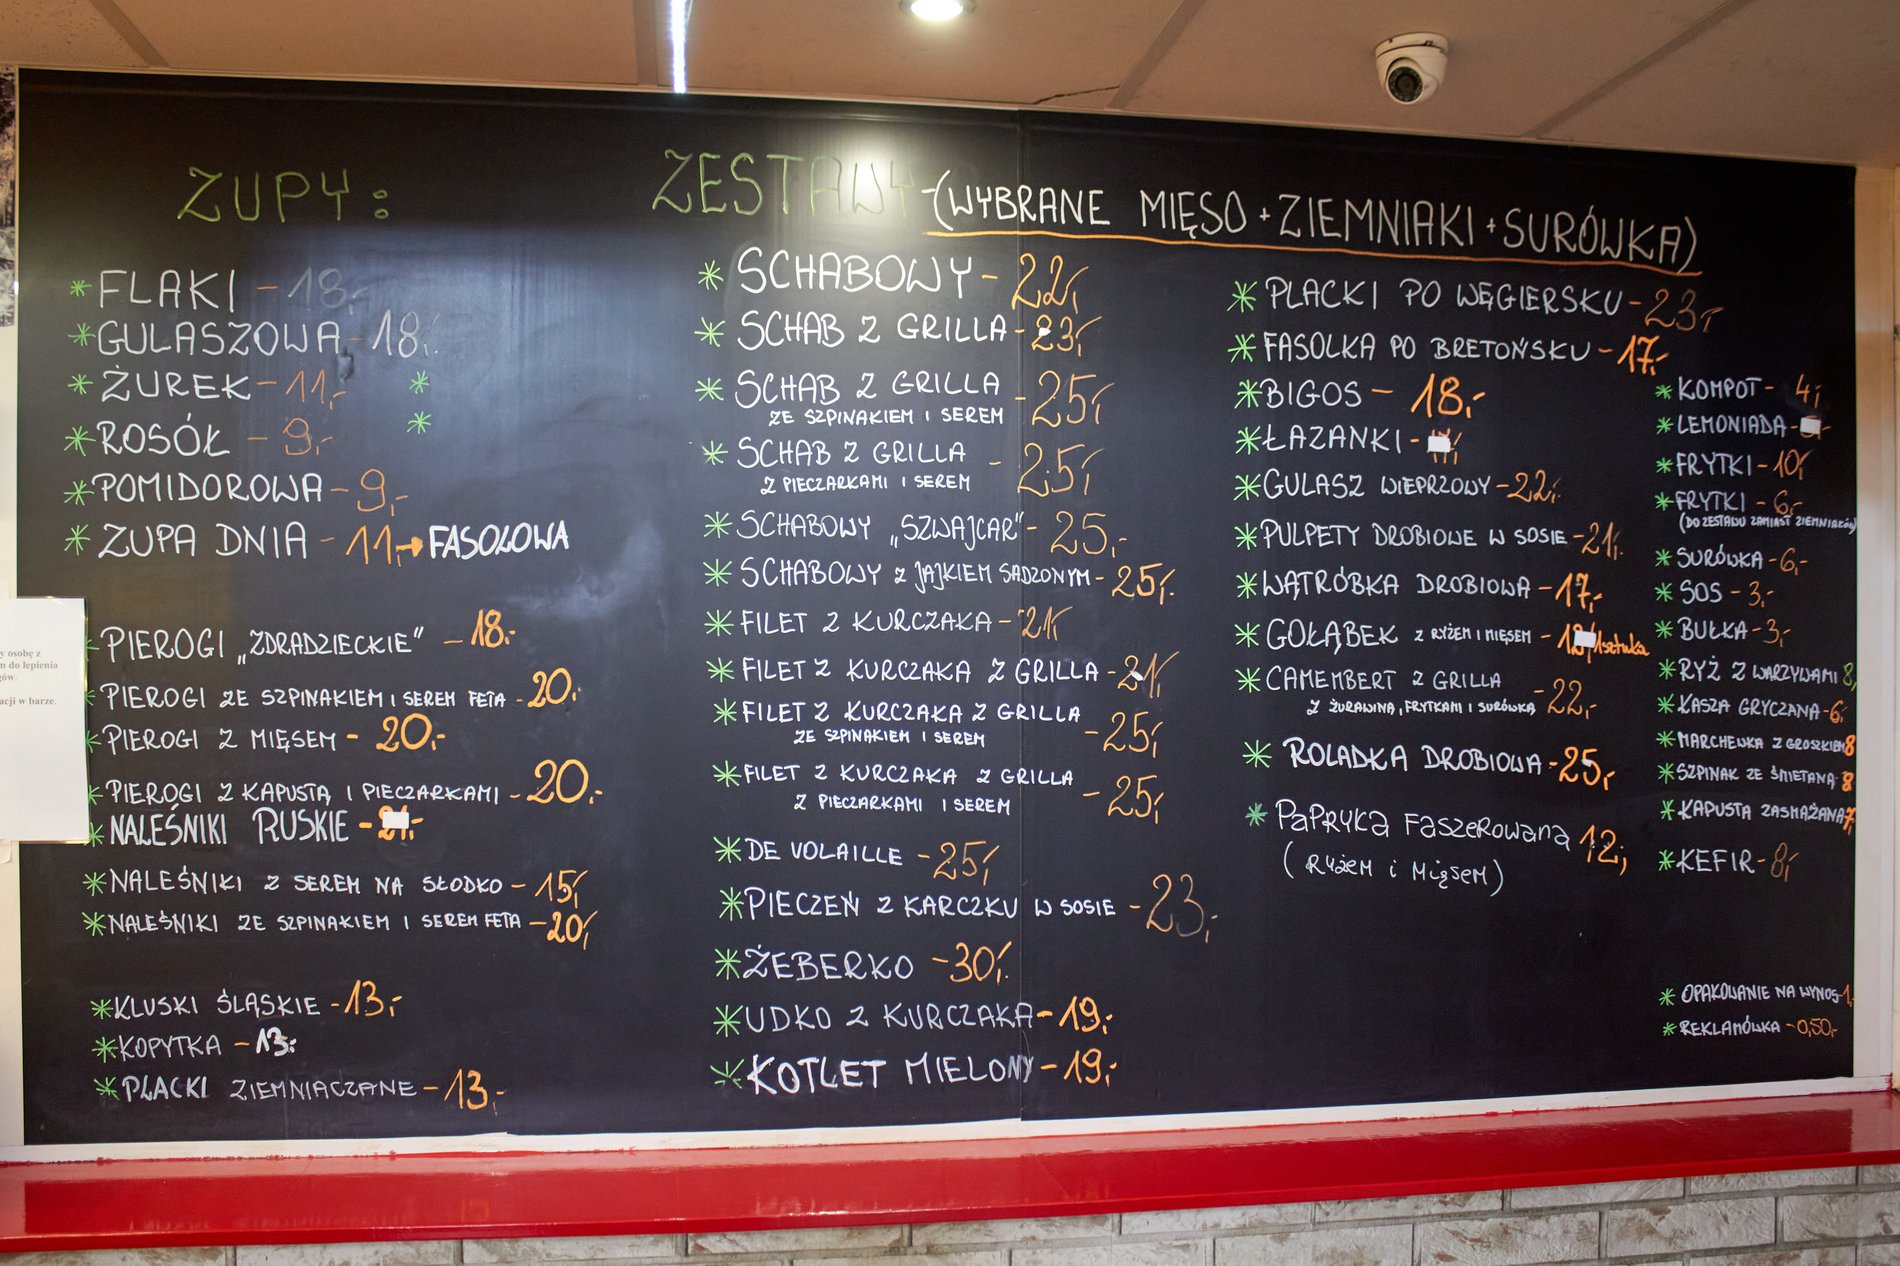 ZUPY:
* FLAKI - 18,-
* GULASZOWA - 18,-
* ŻUREK - 11,- *
* ROSÓŁ - 9,- *
* POMIDOROWA - 9,-
* ZUPA DNIA - 11,- → FASOLOWA
PIEROGI „ZDRADZIECKIE" - 18.-
PIEROGI ZE SZPINAKIEM I SEREM FETA - 20.-
PIEROGI Z MIĘSEM - 20.-
PIEROGI Z KAPUSTĄ I PIECZARKAMI - 20.-
* NALEŚNIKI RUSKIE -
* NALEŚNIKI Z SEREM NA SŁODKO - 15,-
* NALEŚNIKI ZE SZPINAKIEM I SEREM FETA - 20,-
* KLUSKI ŚLĄSKIE - 13,-
* KOPYTKA - 13.-
* PLACKI ZIEMNIACZANE - 13,-
y osobę z
m do lepienia
gów.
acji w barze.
ZESTAWY - (WYBRANE MIĘSO + ZIEMNIAKI + SURÓWKA)
* SCHABOWY - 22,-
* SCHAB Z GRILLA - 23,-
* SCHAB Z GRILLA - 25,-
ZE SZPINAKIEM I SEREM
* SCHAB Z GRILLA - 25,-
Z PIECZARKAMI I SEREM
* SCHABOWY „SZWAJCAR" - 25,-
* SCHABOWY Z JAJKIEM SADZONYM - 25,-
* FILET Z KURCZAKA - 21,-
* FILET Z KURCZAKA Z GRILLA - 21,-
* FILET Z KURCZAKA Z GRILLA - 25,-
ZE SZPINAKIEM I SEREM
* FILET Z KURCZAKA Z GRILLA - 25,-
Z PIECZARKAMI I SEREM
* DE VOLAILLE - 25,-
* PIECZEŃ Z KARCZKU W SOSIE - 23,-
* ŻEBERKO - 30,-
* UDKO Z KURCZAKA - 19,-
* KOTLET MIELONY - 19,-
* PLACKI PO WĘGIERSKU - 23,-
* FASOLKA PO BRETOŃSKU - 17,-
* BIGOS - 18,-
* ŁAZANKI -
* GULASZ WIEPRZOWY - 22,-
* PULPETY DROBIOWE W SOSIE - 21,-
* WĄTRÓBKA DROBIOWA - 17,-
* GOŁĄBEK Z RYŻEM I MIĘSEM - 1sztuka
* CAMEMBERT Z GRILLA - 22,-
Z ŻURAWINĄ, FRYTKAMI I SURÓWKĄ
* ROLADKA DROBIOWA - 25,-
* PAPRYKA FASZEROWANA 12,-
(RYŻEM i MIĘSEM)
* KOMPOT - 4,-
* LEMONIADA -
* FRYTKI - 10,-
* FRYTKI - 6,-
(DO ZESTAWU ZAMIAST ZIEMNIAKÓW)
* SURÓWKA - 6,-
* SOS - 3,-
* BUŁKA - 3,-
* RYŻ Z WARZYWAMI 8,
* KASZA GRYCZANA - 6,-
* MARCHEWKA Z GROSZKIEM 8
* SZPINAK ZE ŚMIETANĄ 8
* KAPUSTA ZASMAŻANA 7,
* KEFIR - 8,-
* OPAKOWANIE NA WYNOS - 1,-
* REKLAMÓWKA - 0,50,-